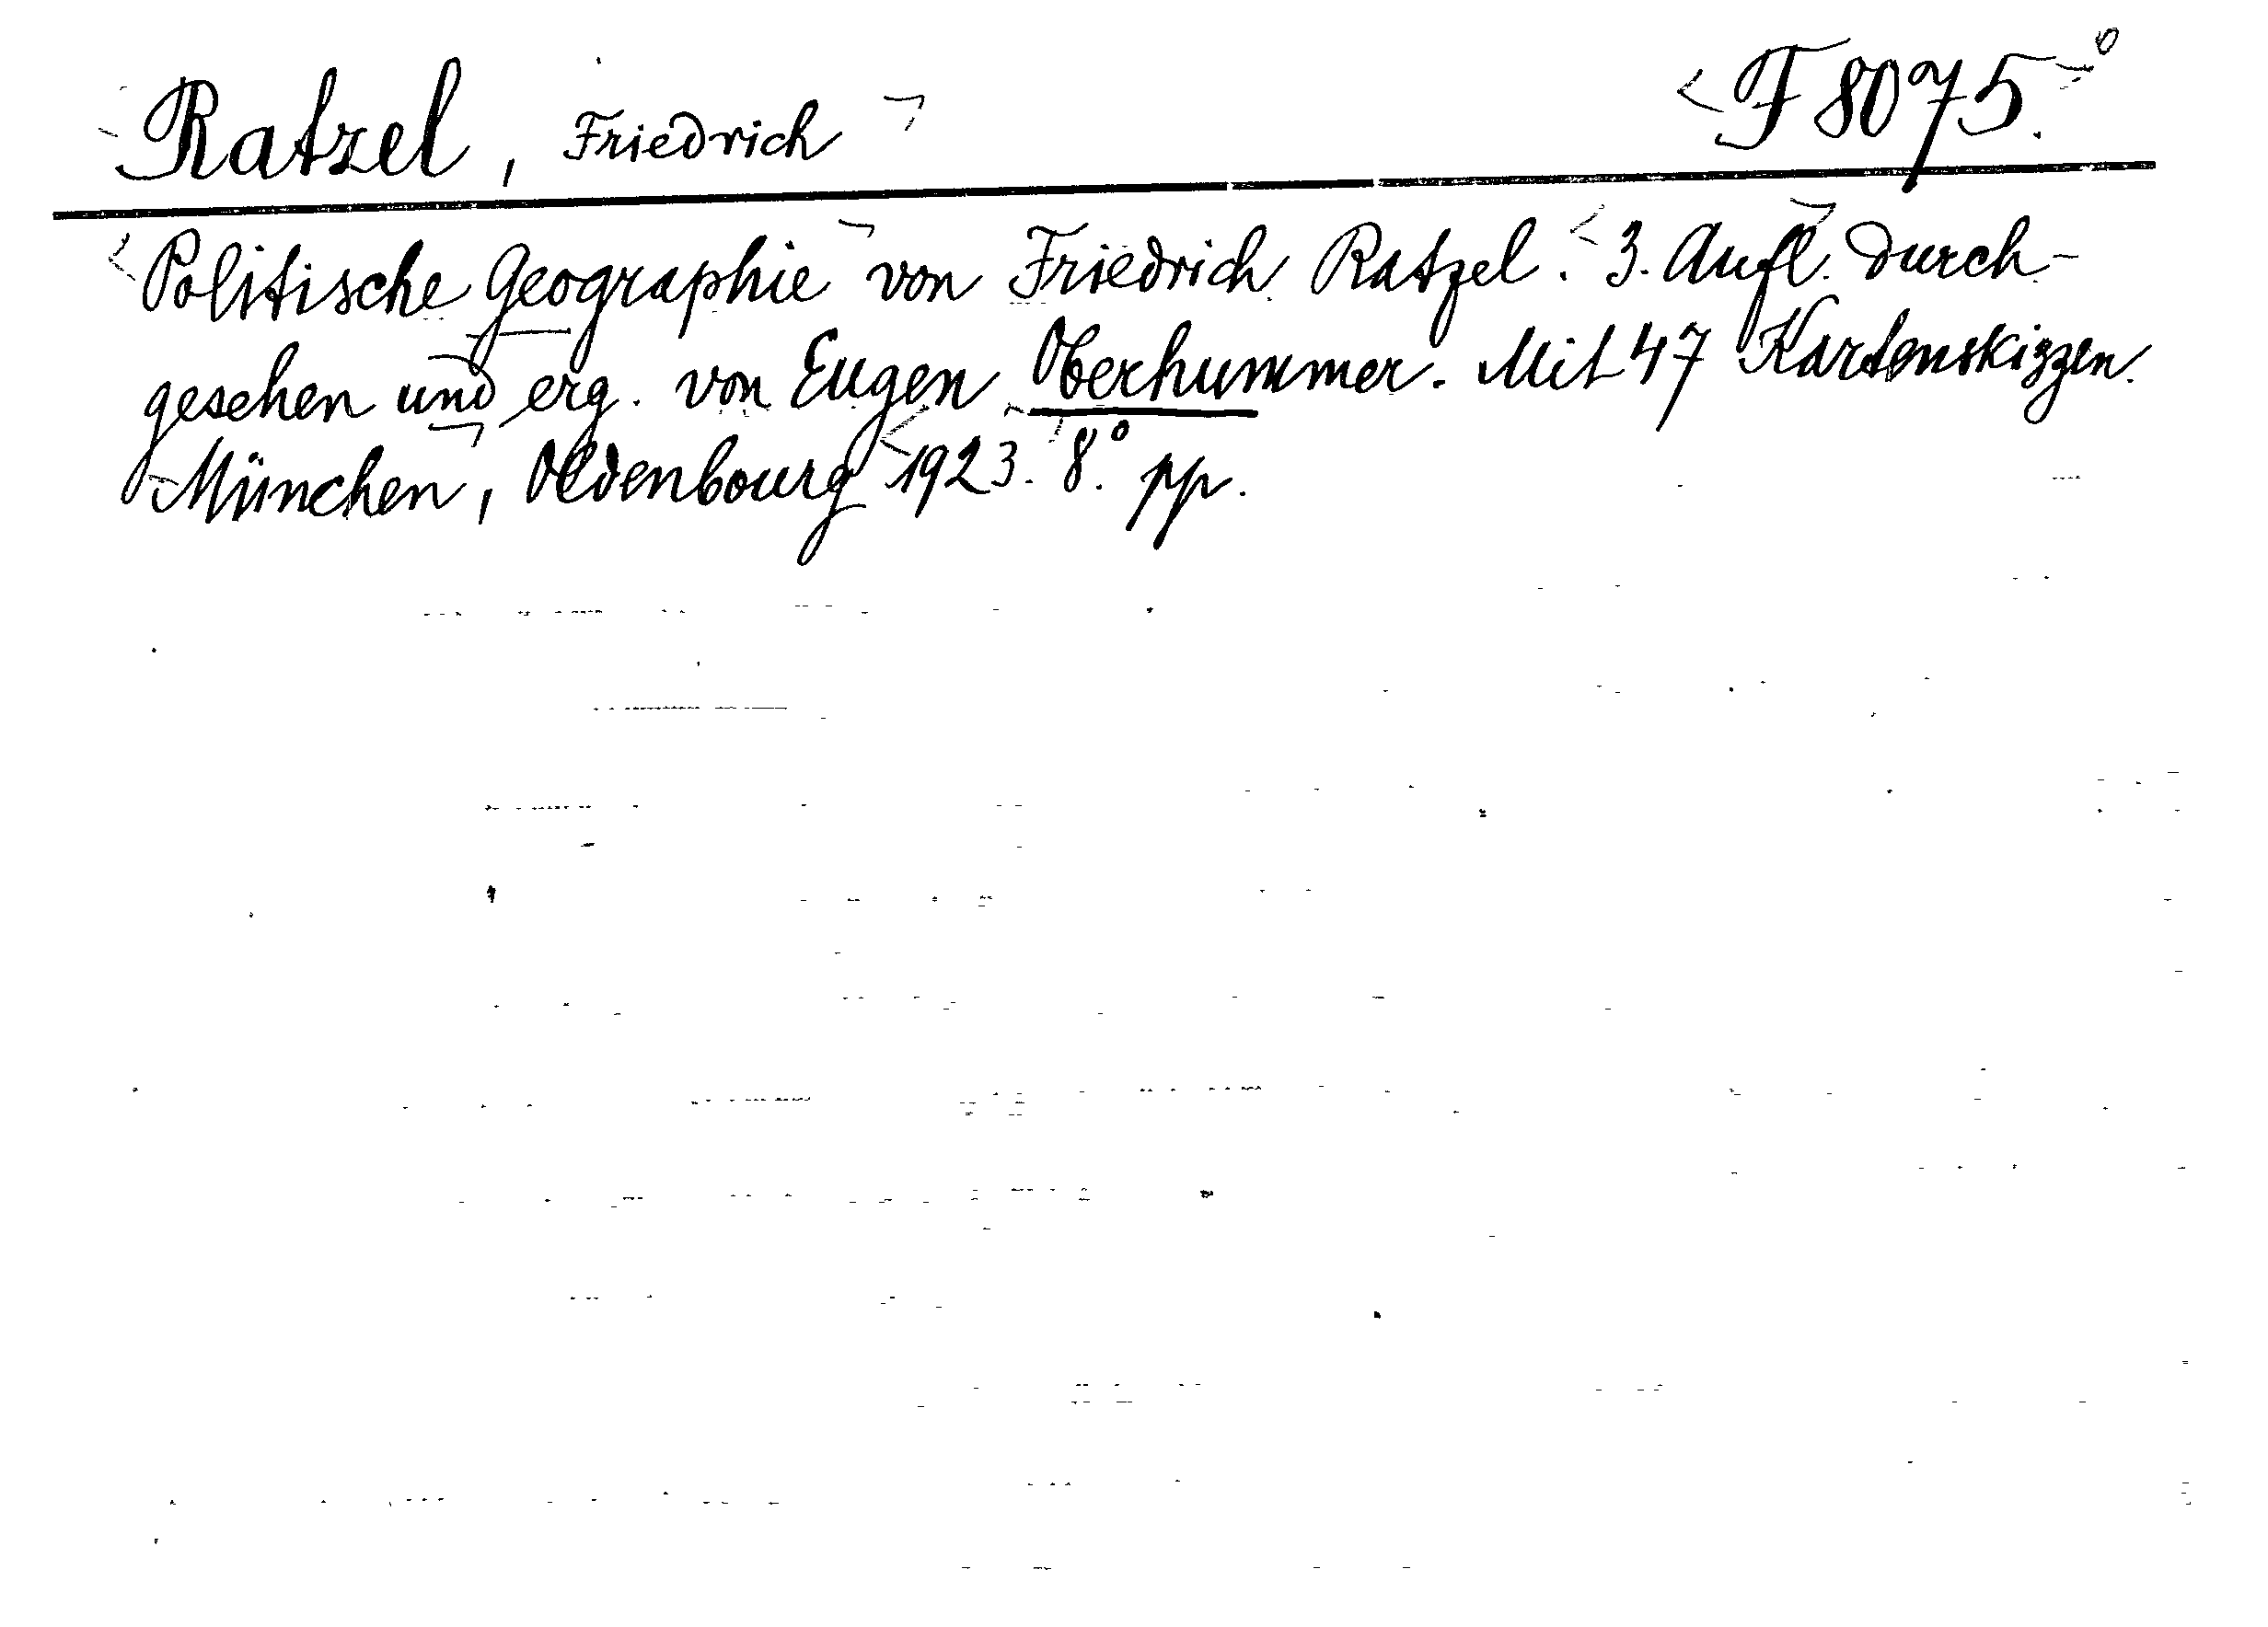 Ratzel, Friedrich F 8075.°
Politische Geographie von Friedrich Ratzel. 3. Aufl. durch-
gesehen und erg. von Eugen Oberhummer. Mit 47 Kartenskizzen.
München, Oldenbourg 1923. 8.° pp.